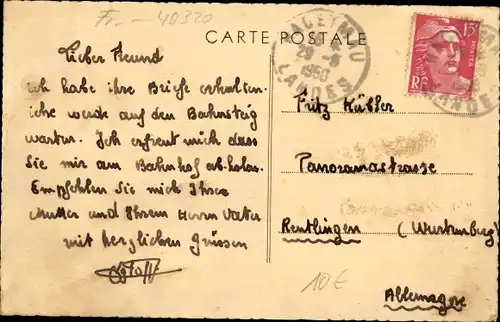 Fr. - 40320
CARTE POSTALE
Lieber Freund
ich habe ihre Briefe erhalten.
ich werde auf den Bahnsteig
warten. Ich erfreut mich dass
Sie mir am Bahnhof abholen.
Empfehlen Sie mich Ihrer
Mutter und Ihrem Herrn Vater
mit herzlichen Grüssen
15F
POSTES
RF
1950
LANDES
Fritz Kübler
Panoramastrasse
Reutlingen (Wurtemberg)
10 €
Allemagne